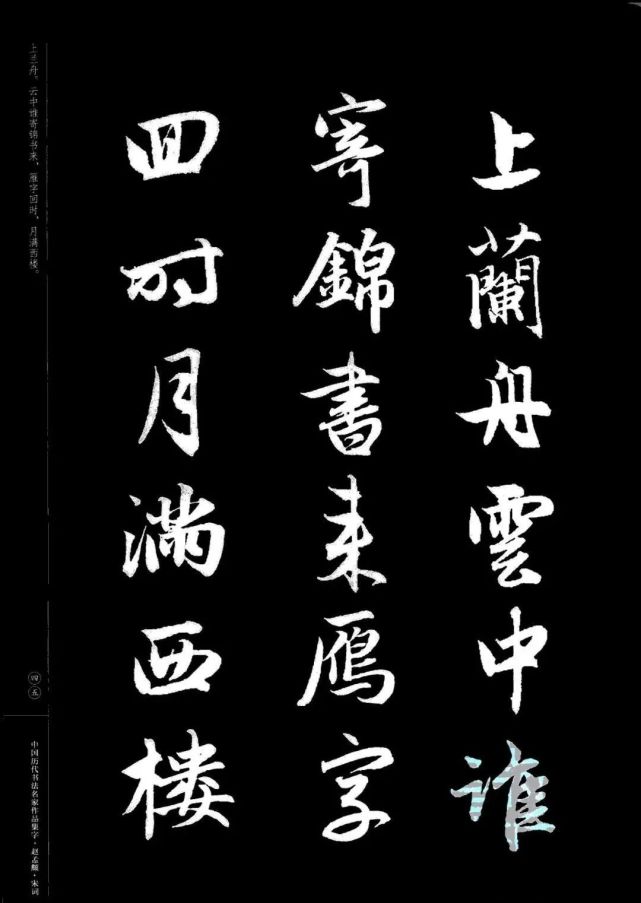 上蘭舟雲中誰
寄錦書来鴈字
回时月満西楼
上兰舟。云中谁寄锦书来，雁字回时，月满西楼。
四五
中国历代书法名家作品集字·赵孟頫·宋词